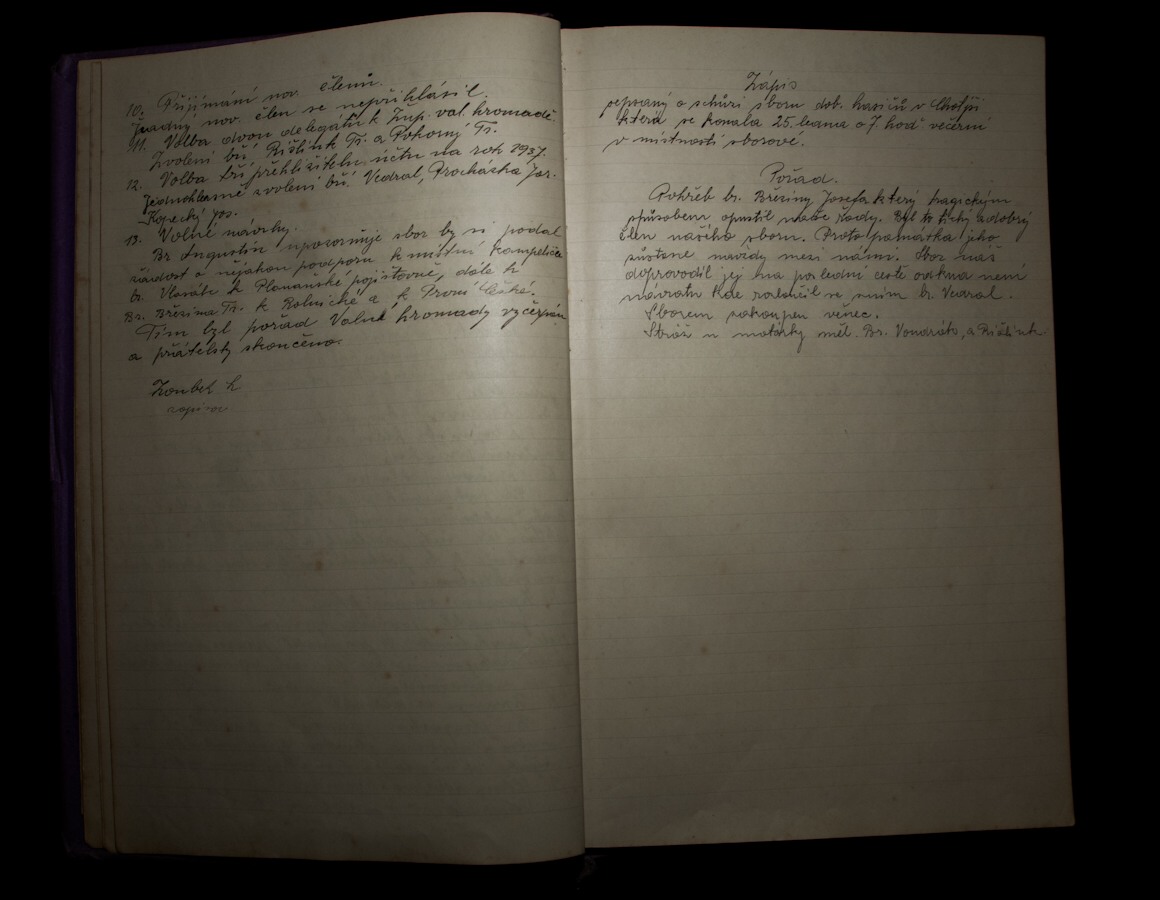 10. Přijímání nov. členů.
Žádný nov. člen se nepřihlásil.
11. Volba dvou delegátů k Žup. val. hromadě.
Zvoleni bří Rišlink Fr. a Pokorný Fr.
12. Volba tří přehlížitelů účtů na rok 1937.
Jednohlasně zvoleni bří. Vedral, Procházka Jar.
Kopecký Jos.
13. Volné návrhy.
Br Augustin upozorňuje sbor by si podal
žádost o nějakou podporu k místní kampeličce
br. k Plonaňské pojišťovně, dále k
Br. Březina Fr. k Rolnické a k První České.
Tím byl pořad Valné hromady vyčerpán
a přátelsky skončeno.
Zoubek L
zapisov.
Zápis
sepsaný o schůzi sboru dob. hasičů v
která se konala 25. ledna o 7. hod večerní
v místnosti sborové.
Pořad.
Pohřeb br. Březiny Josefa který tragickým
spůsobem opustil naše řady. Byl to tichý a dobrý
člen našeho sboru. Proto památka jeho
zůstane navždy mezi námi. Sbor náš
doprovodil jej na poslední cestě odkud není
návratu kde rozloučil se sním br. Vedral.
Sborem zakoupen věnec.
Stráž u motorky měl. Br. Vondrák, a Rišlink